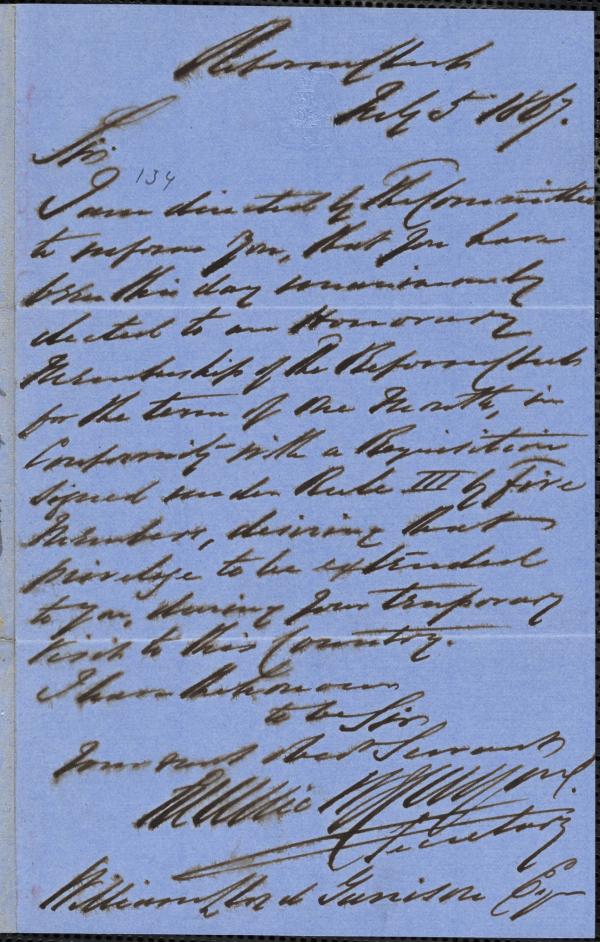 Reform Club
July 5 1867.
Sir
134
I am directed by The Committee
to inform you, that you have
been this day unanimously
elected to an Honorary
Membership of The Reform Club
for the term of One Month, in
Conformity with a Requisition
signed under Rule III by Five
Members, desiring that
privilege to be extended
to you, during your temporary
Visit to this Country.
I have the honour
to be Sir
Your most Obedt Servant
Secretary
William Lloyd Garrison Esqr